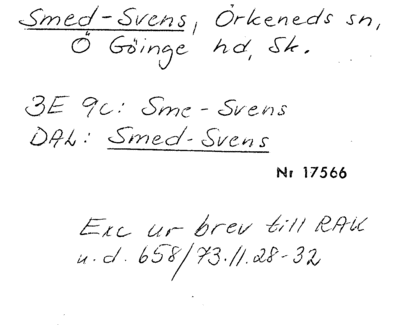 Smed-Svens, Örkeneds sn,
Ö Göinge hd, Sk.
3E 9c: Sme-Svens
DAL: Smed-Svens
Nr 17566
Exc ur brev till RAK
u.d. 658/73.11.28-32